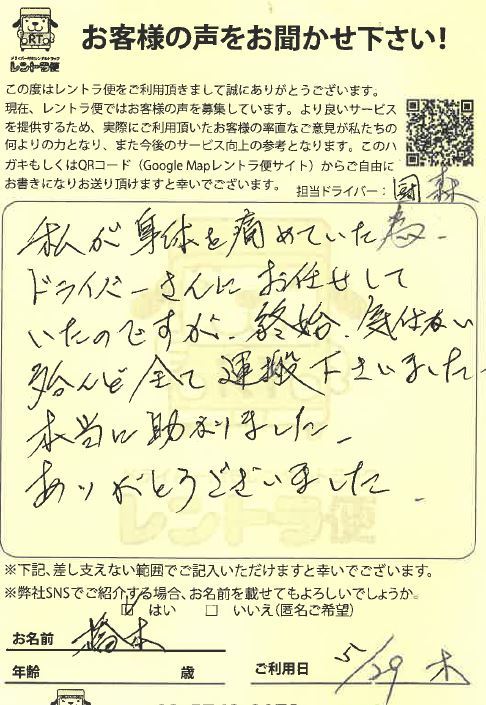 RT
ドライバー付きレンタルトラック
レントラ便
お客様の声をお聞かせ下さい!
この度はレントラ便をご利用頂きまして誠にありがとうございます。
現在、レントラ便ではお客様の声を募集しています。より良いサービス
を提供するため、実際にご利用頂いたお客様の率直なご意見が私たちの
何よりの力となり、また今後のサービス向上の参考となります。このハ
ガキもしくはQRコード（Google Mapレントラ便サイト）からご自由に
お書きになりお送り頂けますと幸いでございます。
担当ドライバー：國森
私が身体を痛めていた為、
ドライバーさんにお任せして
いたのですが、終始、気使ない
殆んど全て運搬下さいました。
本当に助かりました。
ありがとうございました。
レントラ便
※下記、差し支えない範囲でご記入いただけますと幸いでございます。
※弊社SNSでご紹介する場合、お名前を載せてもよろしいでしょうか。
☑ はい □ いいえ(匿名ご希望)
お名前 橋本
年齢 歳 ご利用日 5/29 木